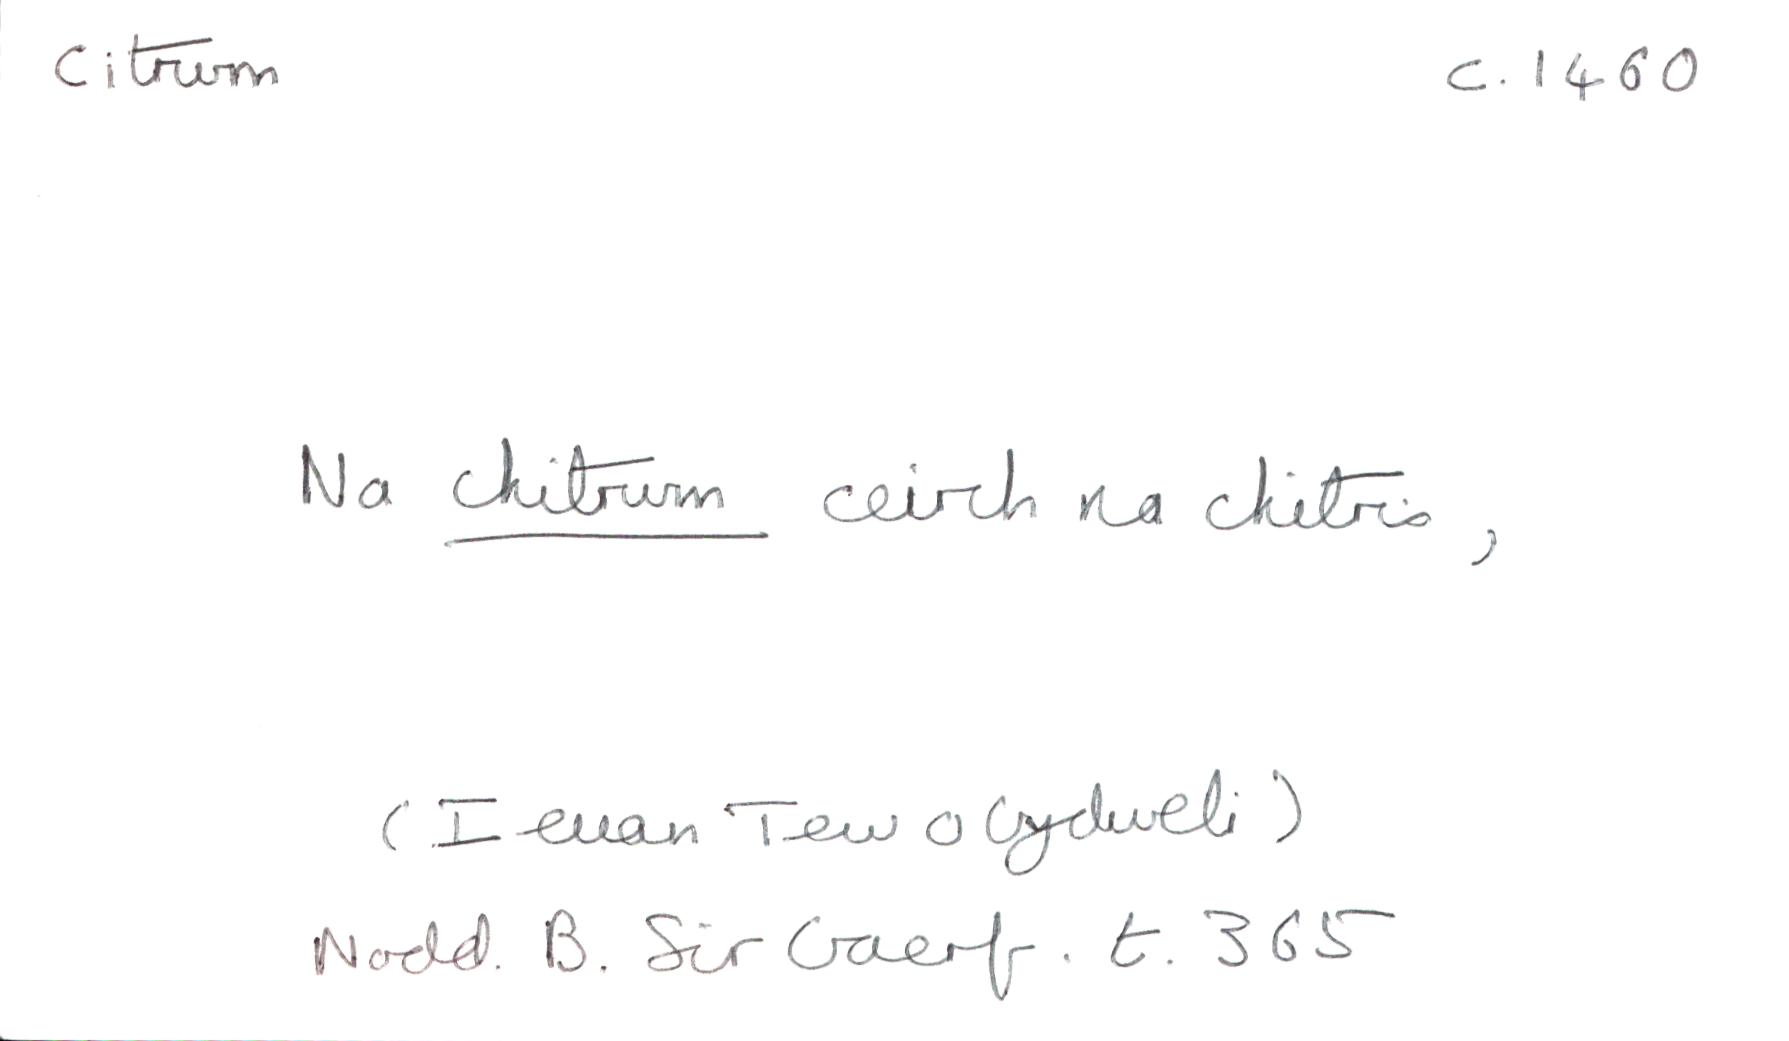 Citrwm c. 1460
Na chitrwm ceirch na chitris,
(Ieuan Tew o Gydweli)
Nodd. B. Sir Gaerf. t. 365